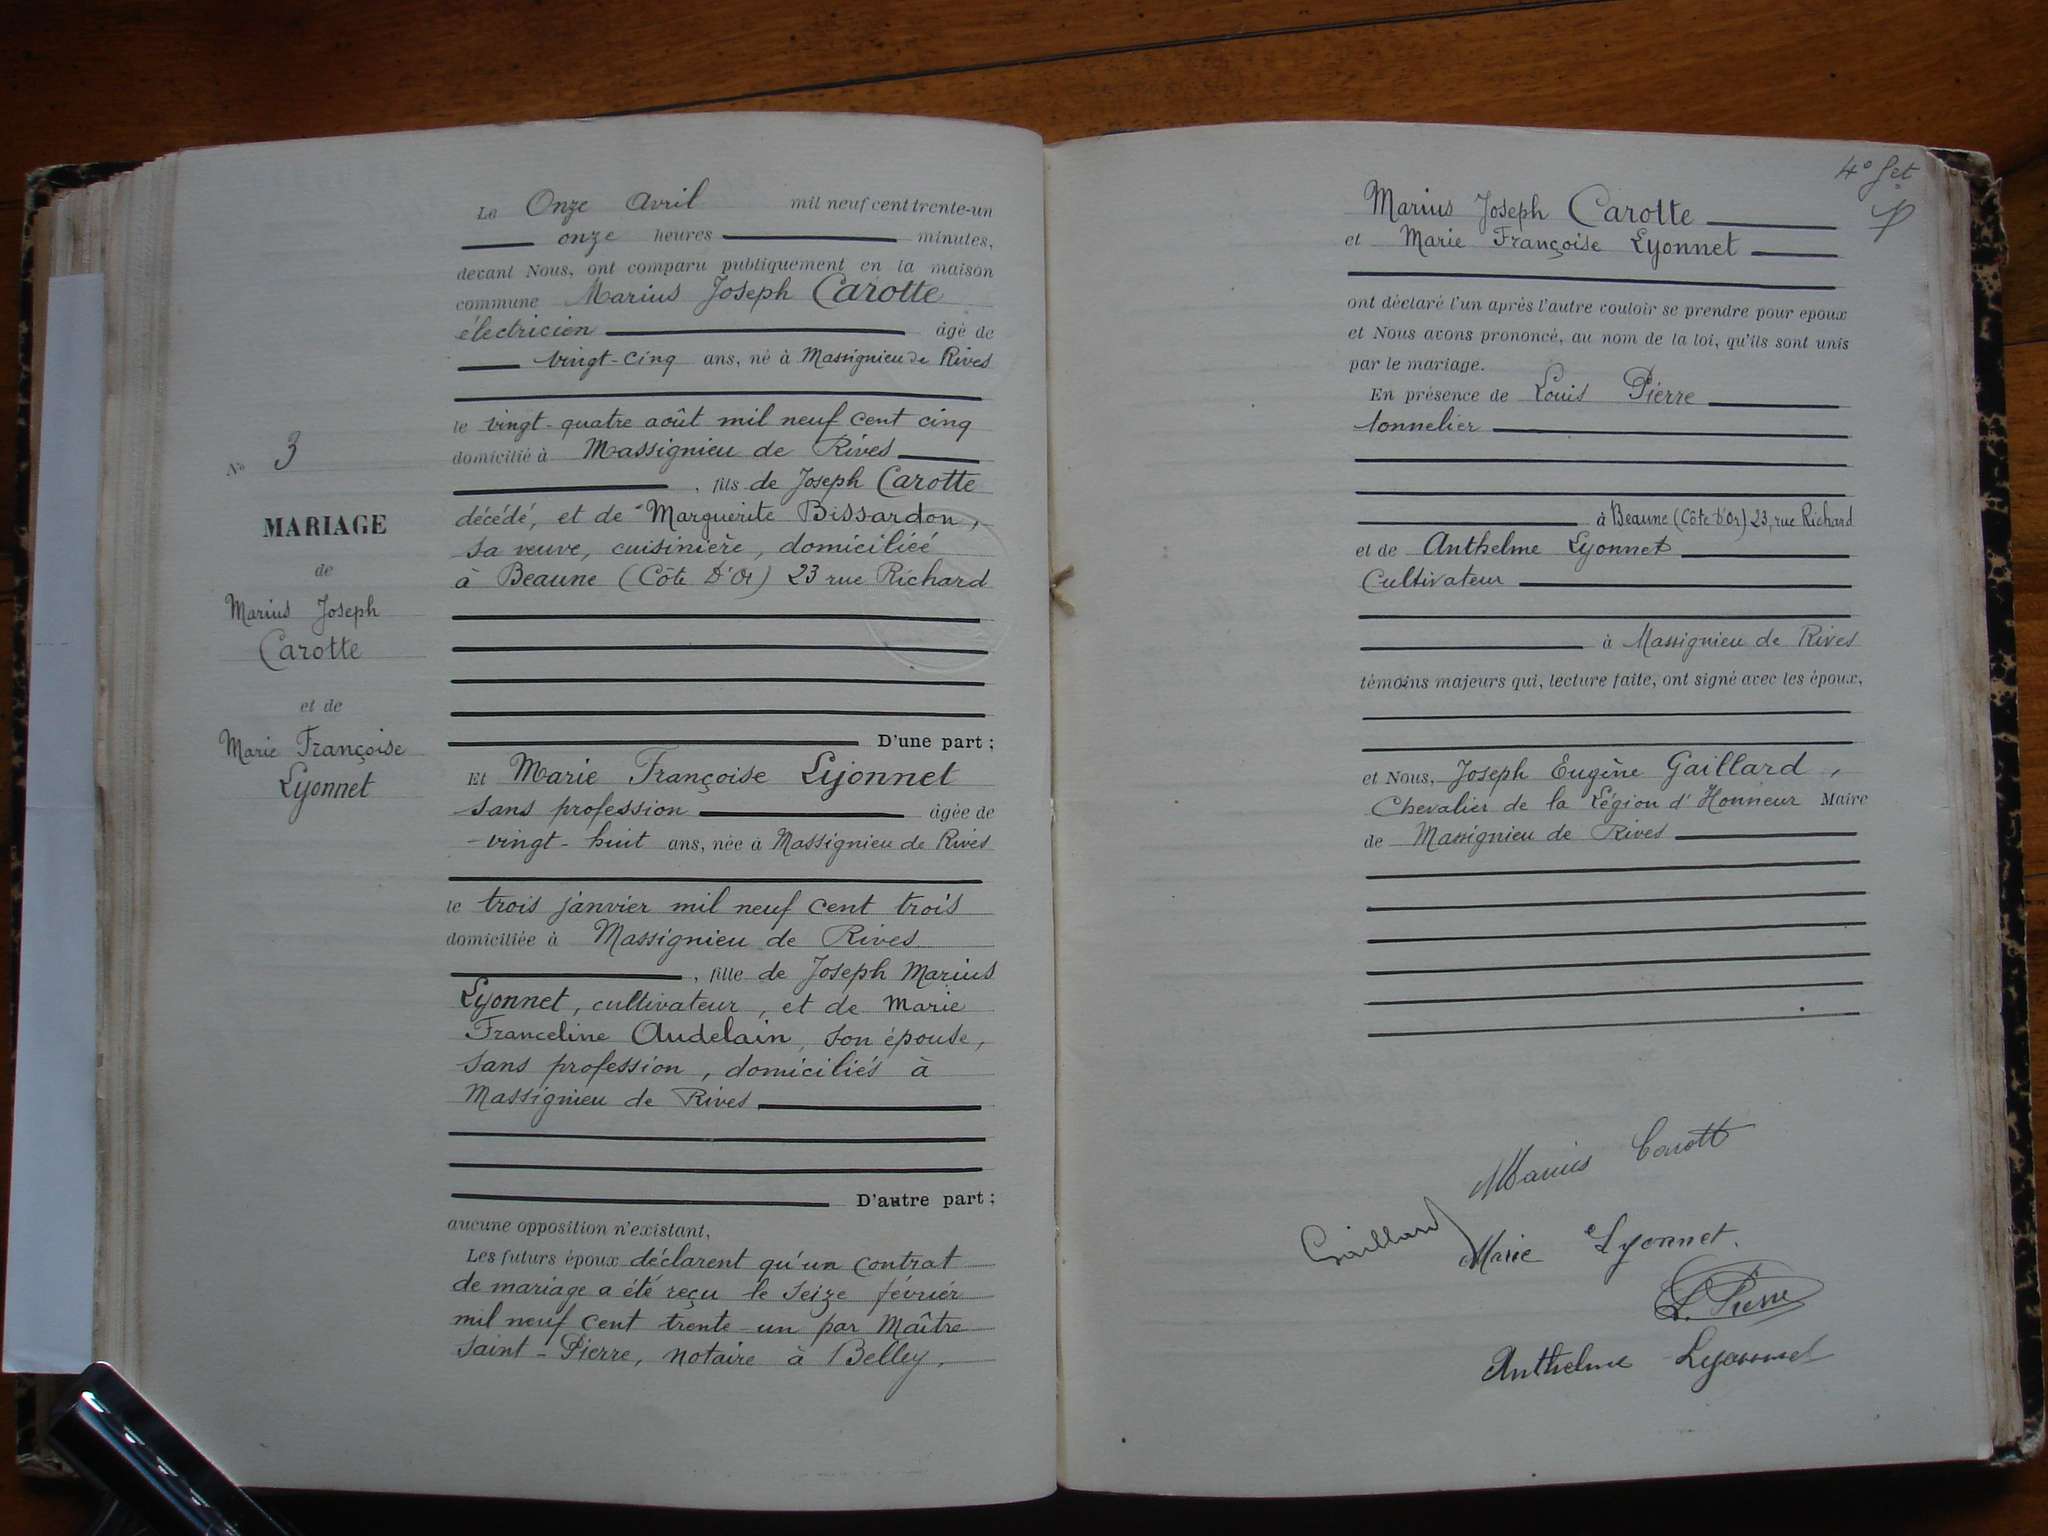 Nº 3
MARIAGE
de
Marius Joseph
Carotte
et de
Marie Françoise
Lyonnet
Le Onze Avril mil neuf cent trente-un
onze heures minutes,
devant Nous, ont comparu publiquement en la maison
commune Marius Joseph Carotte
électricien âgé de
vingt-cinq ans, né à Massignieu de Rives
le vingt-quatre août mil neuf cent cinq
domicilié à Massignieu de Rives
, fils de Joseph Carotte
décédé, et de Marguerite Bissardon,
sa veuve, cuisinière, domiciliée
à Beaune (Côte d'Or) 23 rue Richard
D'une part ;
Et Marie Françoise Lyonnet
sans profession âgée de
vingt-huit ans, née à Massignieu de Rives
le trois janvier mil neuf cent trois
domiciliée à Massignieu de Rives
, fille de Joseph Marius
Lyonnet, cultivateur, et de Marie
Franceline Audelain, son épouse,
sans profession, domiciliés à
Massignieu de Rives
D'autre part ;
aucune opposition n'existant,
Les futurs époux déclarent qu'un contrat
de mariage a été reçu le seize février
mil neuf cent trente-un par Maître
Saint-Pierre, notaire à Belley.
4º
Marius Joseph Carotte
et Marie Françoise Lyonnet
ont déclaré l'un après l'autre vouloir se prendre pour époux
et Nous avons prononcé, au nom de la loi, qu'ils sont unis
par le mariage.
En présence de Louis Pierre
tonnelier
à Beaune (Côte d'Or) 23, rue Richard
et de Anthelme Lyonnet
Cultivateur
à Massignieu de Rives
témoins majeurs qui, lecture faite, ont signé avec les époux,
et Nous, Joseph Eugène Gaillard,
Chevalier de la Légion d'Honneur Maire
de Massignieu de Rives
Marius Carotte
Gaillard
Marie Lyonnet.
L. Pierre
Anthelme Lyonnet